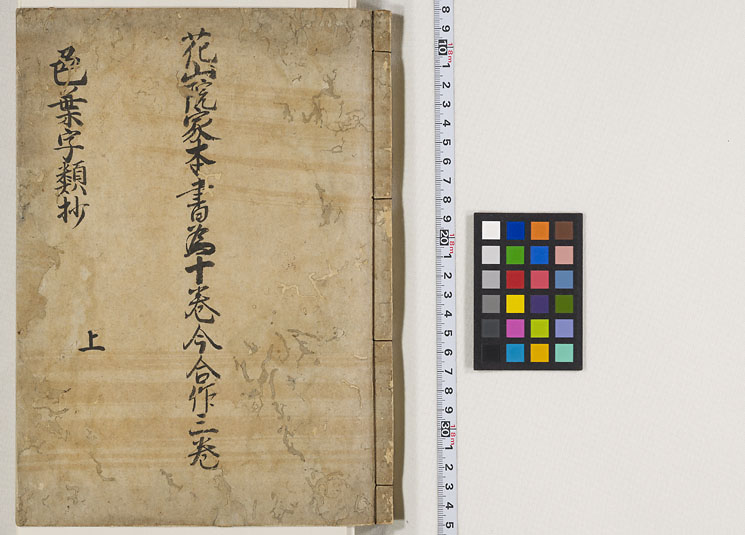 花山院家本書為十巻今合作三巻
色葉字類抄
上
8
9
10
1
2
3
4
5
6
7
8
9
20
1
2
3
4
5
6
7
8
9
30
1
2
3
4
5